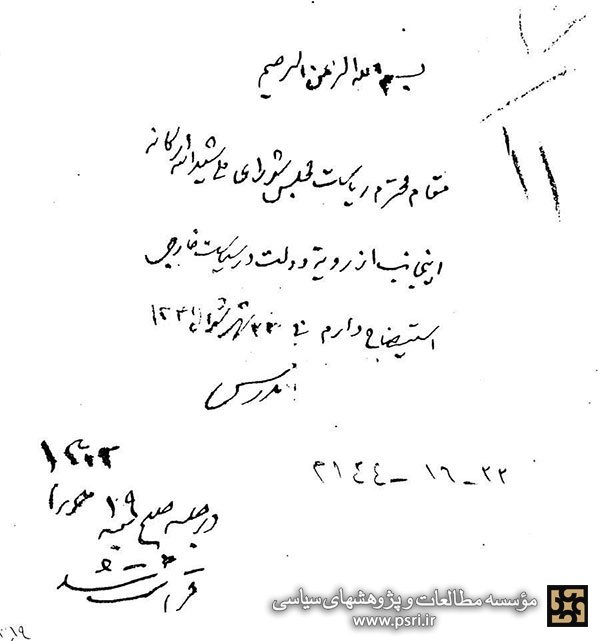 بسم الله الرحمن الرحیم
مقام محترم ریاست مجلس شورای ملی شیدالله ارکانه
اینجانب از رویهٔ دولت در سیاست خارجی
استیضاح دارم ۲۳ شهر شوال ۱۳۴۱
مدرس
۲۲-۱۶-
۱۳۰۲
در جلسه صبح شنبه ۱۹
قرائت شد
مؤسسه مطالعات و پژوهشهای سیاسی
www.psri.ir